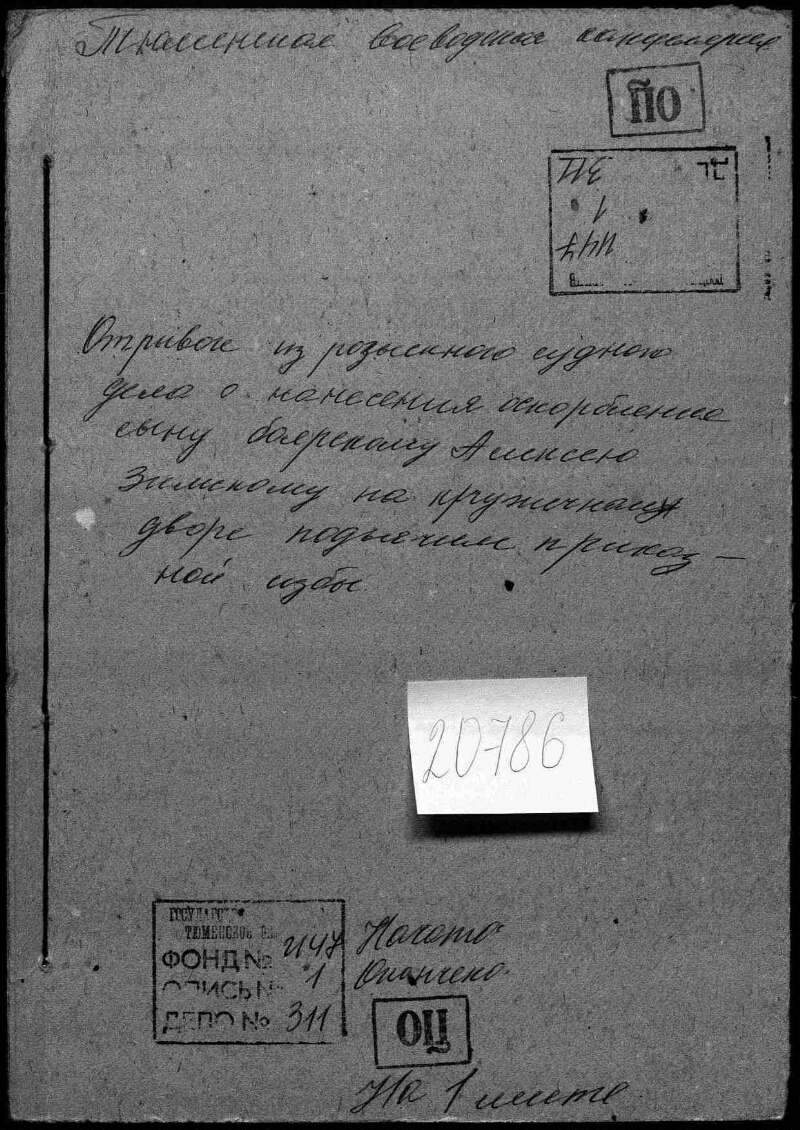 Тюменская воеводская канцелярия
ПО
311
1
И47
Отрывок из розыскного судного
дела о нанесения оскорбление
сыну боярскому Алексею
Зимскому на кружечном
дворе подьячим приказ—
ной избы.
20786
ГОСУДАРСТ
ТЮМЕНСКОЕ О
ФОНД № И47
ОПИСЬ № 1
ДЕЛО № 311
Начато
Окончено
ПО
На 1 листе